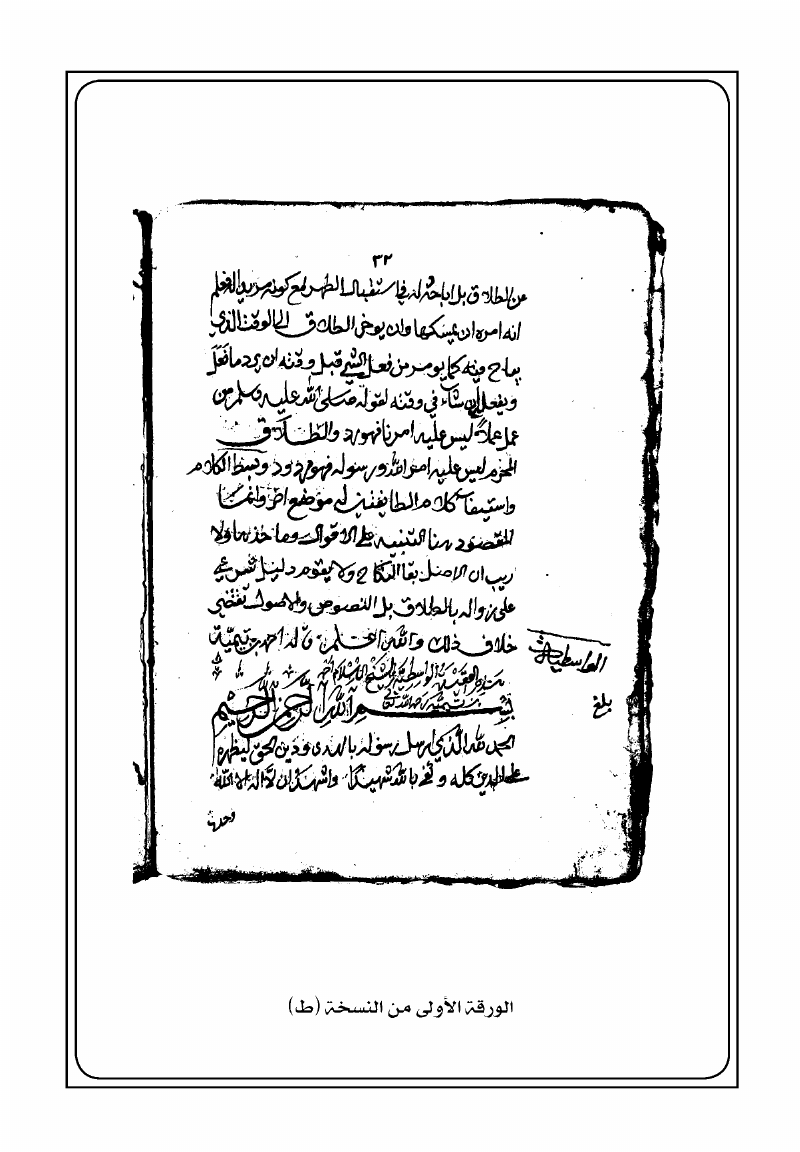 ٣٢
من الطلاق بل اباحه له في استقبال الطهر مع كونه مريدا له فعلم
انه امره ان يمسكها وان يوخر الطلاق الى الوقت الذي
يباح فيه كما يومر من فعل الشي قبل وقته ان يرد ما فعل
ويفعله ان شاء في وقته لقوله صلى الله عليه وسلم من
عمل عملا ليس عليه امرنا فهو رد والطلاق
المحرم ليس عليه امر الله ورسوله فهو مردود وبسط الكلام
واستيفاء كلام الطايفتين له موضع اخر وانما
المقصود هنا التنبيه على الاقوال وماخذها ولا
ريب ان الاصل بقا النكاح ولا يقوم دليل شرعي
على زواله بالطلاق بل النصوص والاصول تقتضي
خلاف ذلك والله اعلم قاله احمد بن تيمية
الواسطية
العقيدة الواسطية للشيخ الاسلام احمد
بن تيمية رضي الله تعالى
بلغ
بسم الله الرحمن الرحيم
الحمد لله الذي ارسل رسوله بالهدى ودين الحق ليظهره
على الدين كله وكفى بالله شهيدا واشهد ان لا اله الا الله
وحده
الورقة الأولى من النسخة (ط)